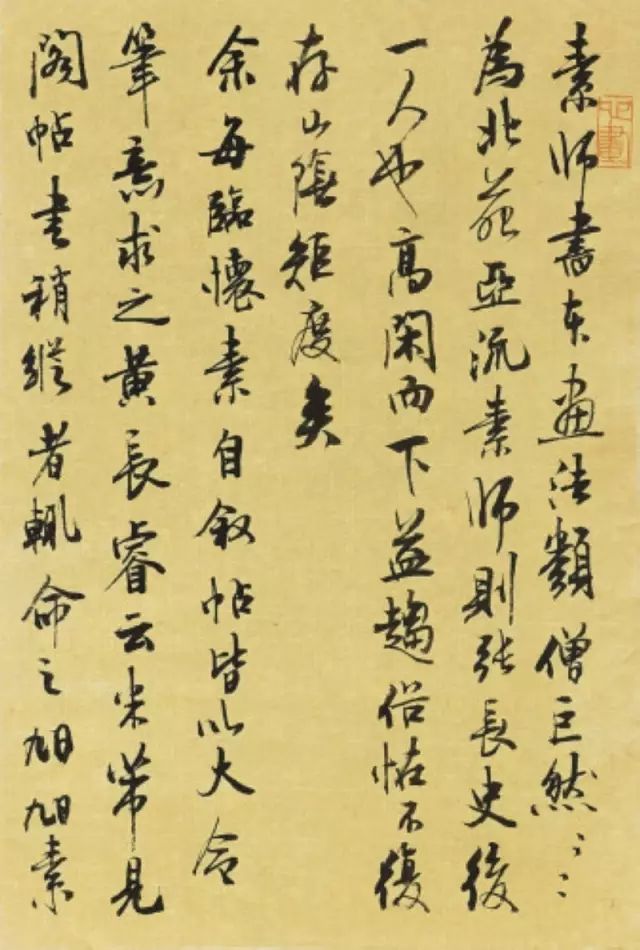 素師書本畫法類僧巨然〻〻
為北苑亞流素師則張長史後
一人也高閑而下益趨俗怪不復
存山陰矩度矣
余每臨懷素自叙帖皆以大令
筆意求之黄長睿云米芾見
閣帖書稍縱者輒命之旭旭素